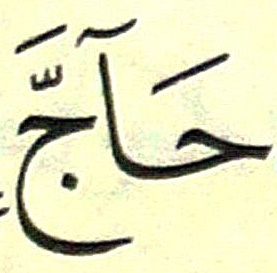 حَآجَّ